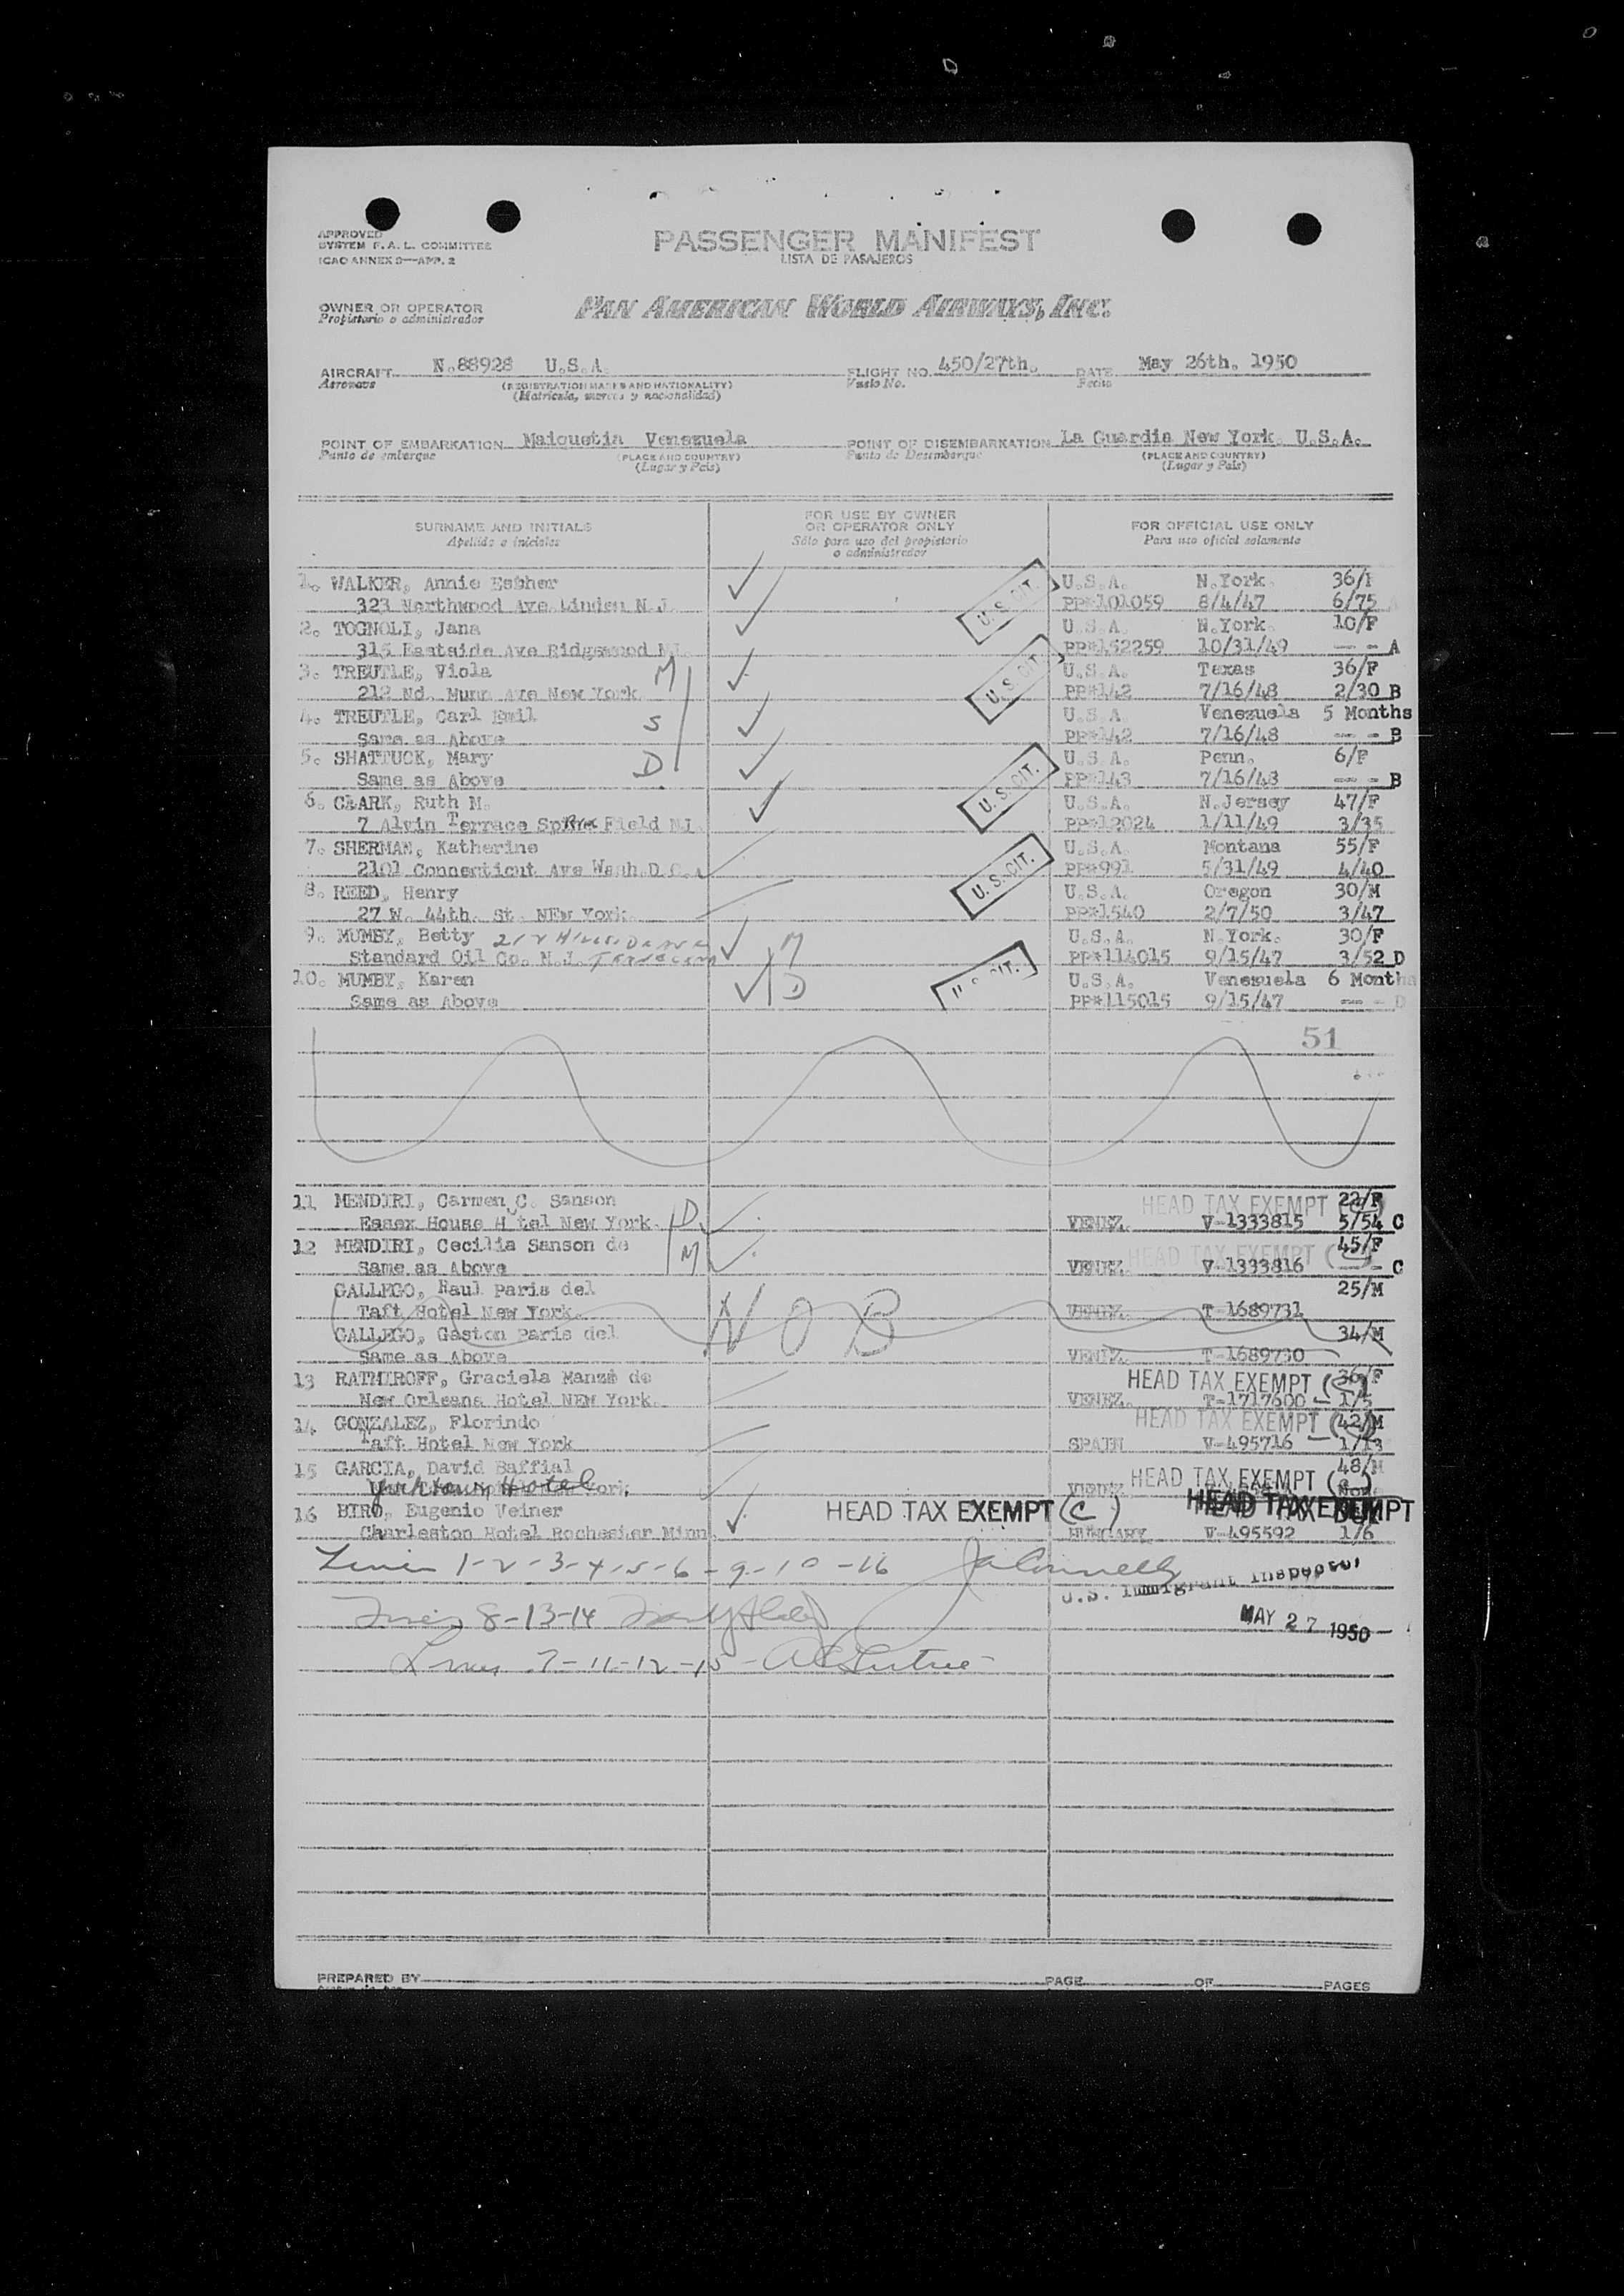 APPROVED
SYSTEM F. A. L. COMMITTEE
ICAO ANNEX 9—APP. 2
PASSENGER MANIFEST
LISTA DE PASAJEROS
OWNER OR OPERATOR
Propietario o administrador
PAN AMERICAN WORLD AIRWAYS, INC.
AIRCRAFT N.88928 U.S.A. FLIGHT NO. 450/27th. DATE May 26th. 1950
Aeronave (REGISTRATION MARKS AND NATIONALITY) Vuelo No. Fecha
(Matrícula, marcas y nacionalidad)
POINT OF EMBARKATION Maiquetia Venezuela POINT OF DISEMBARKATION La Guardia New York U.S.A.
Punto de embarque (PLACE AND COUNTRY) Punto de Desembarque (PLACE AND COUNTRY)
(Lugar y País) (Lugar y País)
SURNAME AND INITIALS FOR USE BY OWNER OR OPERATOR ONLY FOR OFFICIAL USE ONLY
Apellido e iniciales Sólo para uso del propietario o administrador Para uso oficial solamente
1. WALKER, Annie Esther U.S. CIT. U.S.A. N.York. 36/F
323 Northwood Ave Linden N.J. PP*101059 8/4/47 6/75
2. TOGNOLI, Jana U.S.A. N.York. 10/F
315 Eastside Ave Ridgewood NJ. PP*152259 10/31/49 --- A
3. TREUTLE, Viola M U.S. CIT. U.S.A. Texas 36/F
212 Nd. Munn Ave New York PP*142 7/16/48 2/30 B
4. TREUTLE, Carl Emil S U.S.A. Venezuela 5 Months
Same as Above PP*142 7/16/48 --- B
5. SHATTUCK, Mary D U.S. CIT. U.S.A. Penn. 6/F
Same as Above PP*143 7/16/48 --- B
6. CLARK, Ruth M. U.S.A. N.Jersey 47/F
7 Alvin Terrace Field NJ PP*12024 1/11/49 3/35
7. SHERMAN, Katherine U.S. CIT. U.S.A. Montana 55/F
2101 Connecticut Ave Wash.D.C. PP*991 5/31/49 4/40
8. REED, Henry U.S.A. Oregon 30/M
27 W. 44th. St. NEw York. PP*1540 2/7/50 3/47
9. MUMBY, Betty M U.S.A. N.York. 30/F
Standard Oil Co. N.J. PP*114015 9/15/47 3/52 D
10. MUMBY, Karen D CIT. U.S.A. Venezuela 6 Months
Same as Above PP*115015 9/15/47 --- D
51
11 MENDIRI, Carmen C. Sanson HEAD TAX EXEMPT (C) 22/F
Essex House H tel New York. D VENEZ. V-1333815 5/54 C
12 MENDIRI, Cecilia Sanson de HEAD TAX EXEMPT (C) 45/F
Same as Above M VENEZ. V-1333816 --- C
GALLEGO, Raul Paris del 25/M
Taft Hotel New York. N O B VENEZ. T-1689731
GALLEGO, Gaston Paris del 34/M
Same as Above VENEZ. T-1689730
13 RATMIROFF, Graciela Manzo de HEAD TAX EXEMPT (C) 36/F
New Orleans Hotel NEW York. VENEZ. T-1717600 1/5
14 GONZALEZ, Florindo HEAD TAX EXEMPT (C) 42/M
Taft Hotel New York SPAIN V-495716 1/13
15 GARCIA, David Baffial 48/M
Hotel York. VENEZ. HEAD TAX EXEMPT (C)
16 BIRO, Eugenio Weiner HEAD TAX EXEMPT (C) HEAD TAX EXEMPT
Charleston Hotel Rochester Minn. HUNGARY V-495592 1/6
Lines 1-2-3-4-5-6-9-10-16
U.S. Immigrant Inspector
Lines 8-13-14
MAY 27 1950
Lines 7-11-12-15
PREPARED BY PAGE OF PAGES